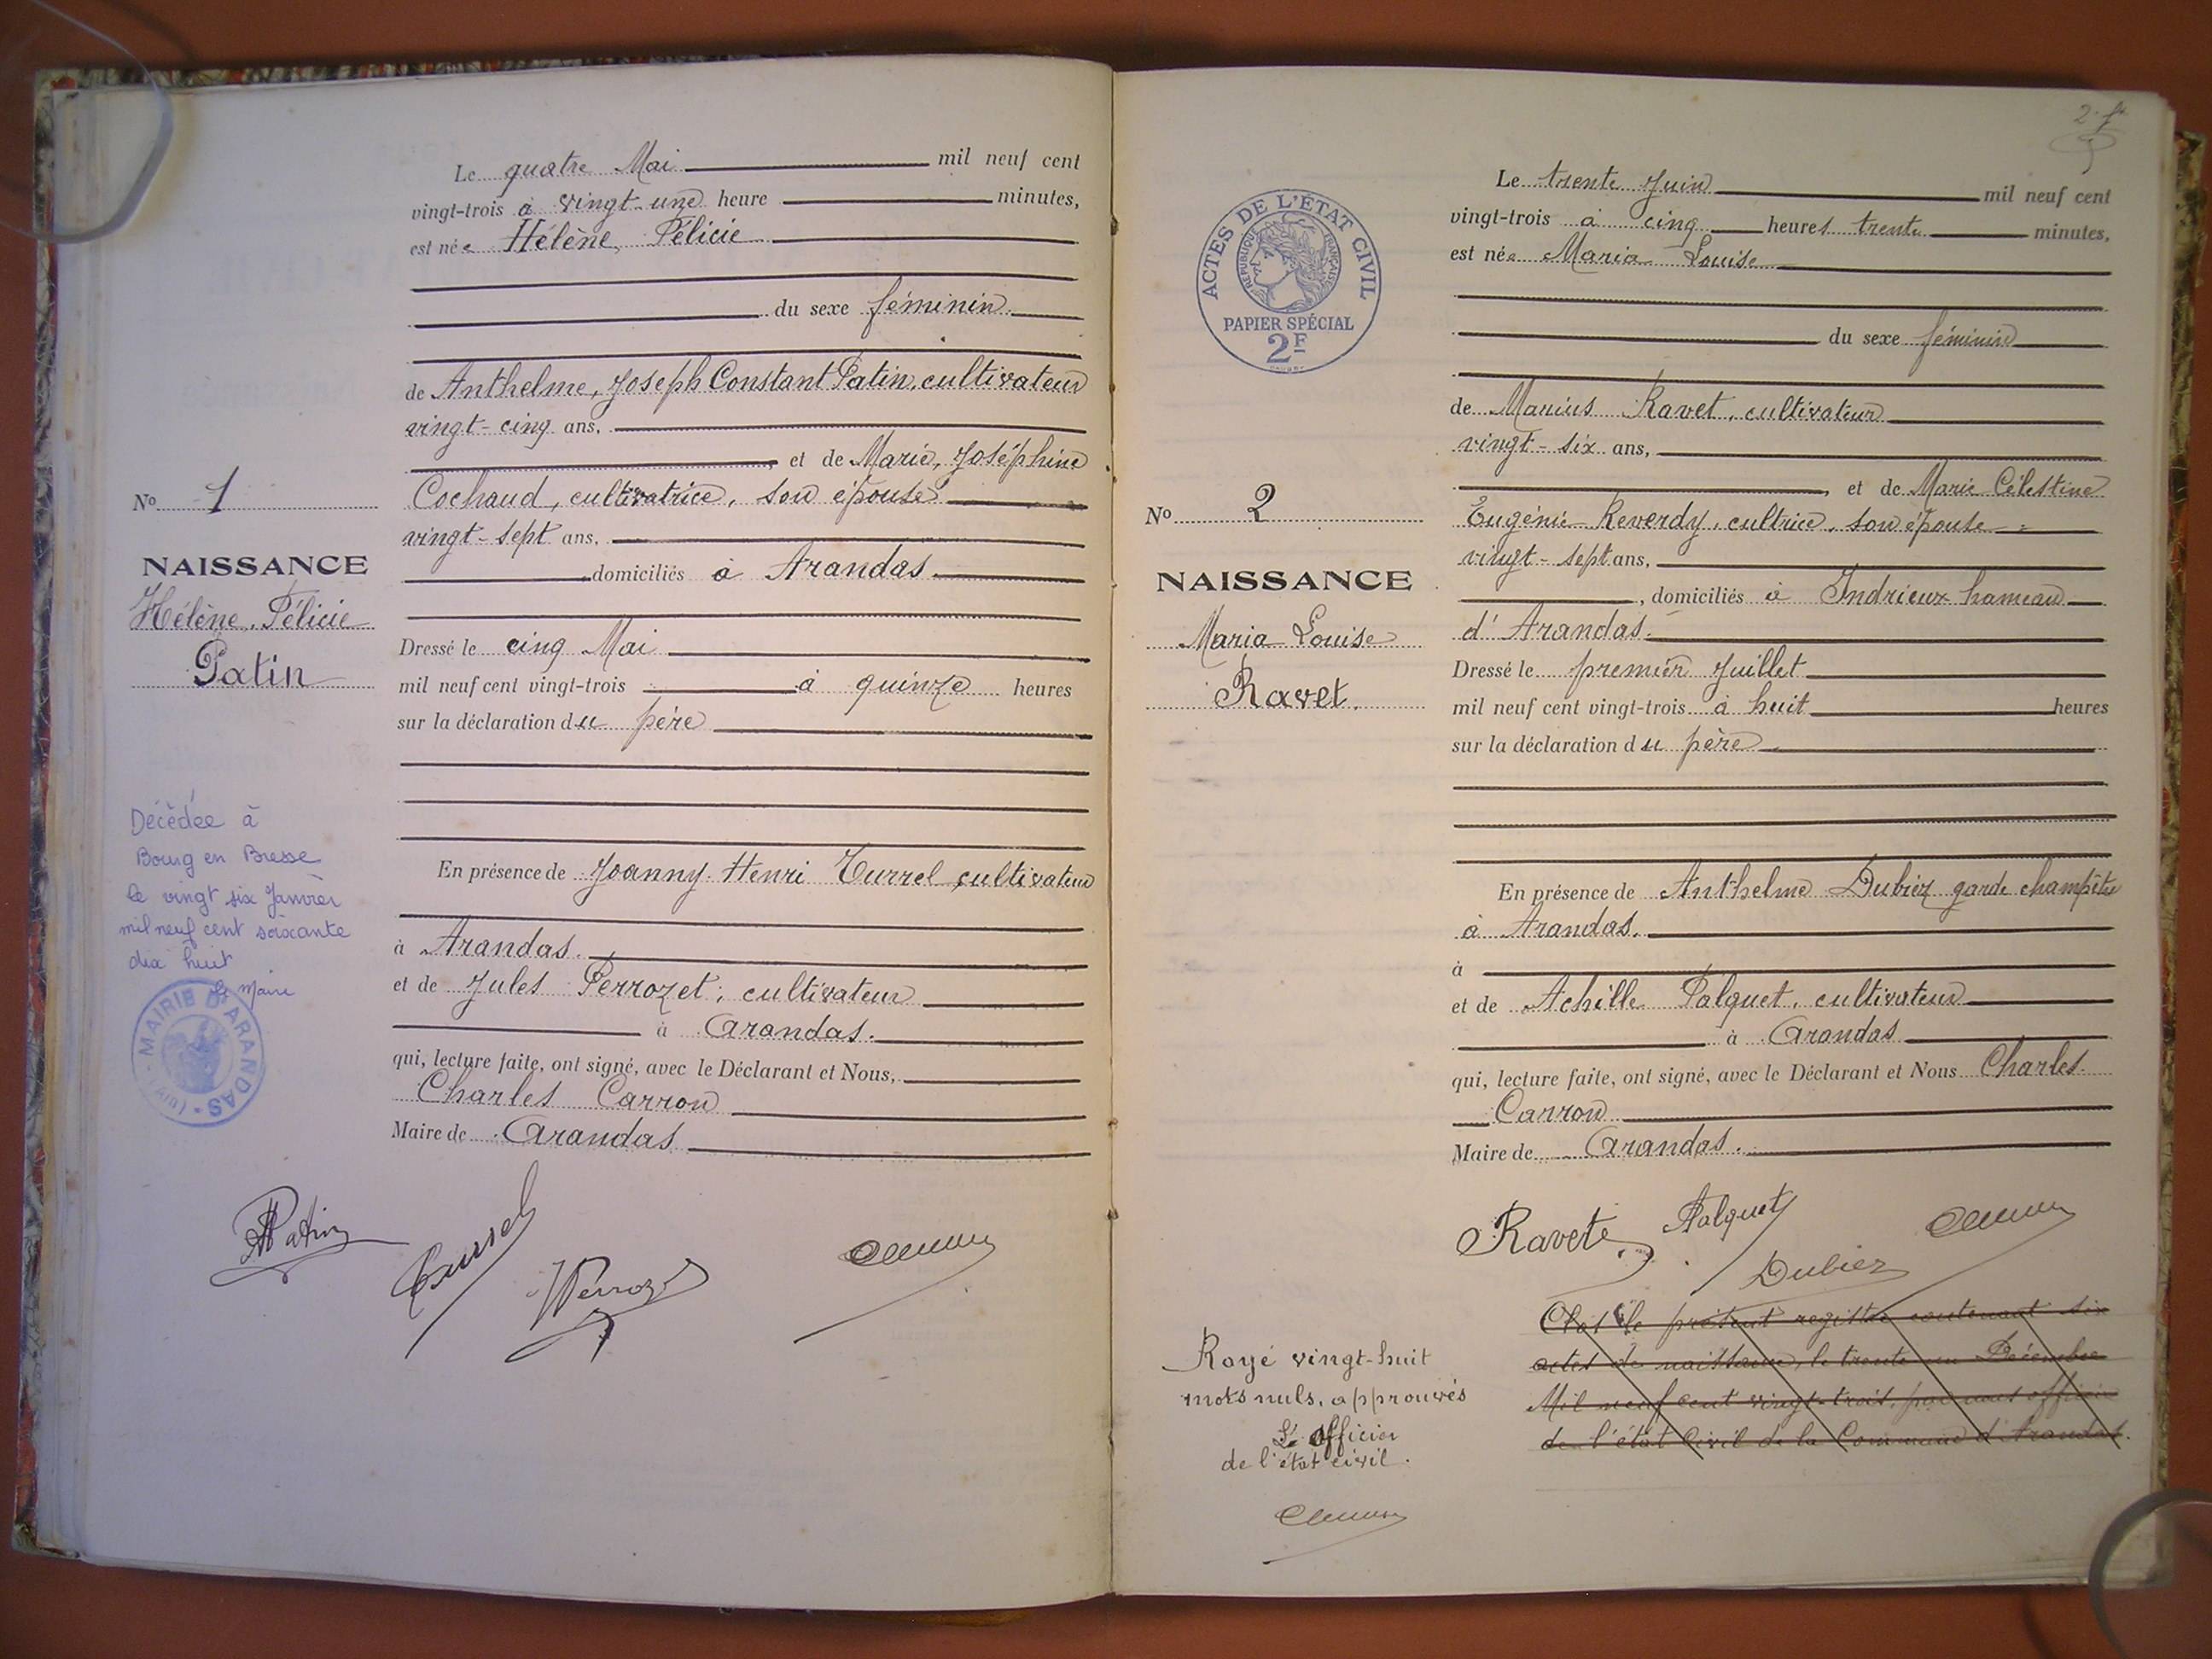 Le quatre Mai mil neuf cent
vingt-trois à vingt-une heure minutes,
est née Hélène, Félicie
du sexe féminin.
de Anthelme, Joseph Constant Patin, cultivateur
vingt-cinq ans,
, et de Marie, Joséphine
Cochaud, cultivatrice, son épouse
vingt-sept ans,
domiciliés à Arandas.
No 1
NAISSANCE
Hélène, Félicie
Patin
Dressé le cinq Mai
mil neuf cent vingt-trois à quinze heures
sur la déclaration du père
Décédée à
Bourg en Bresse
le vingt six Janvier
mil neuf cent soixante
dix huit
Le Maire
MAIRIE D'ARANDAS (AIN)
En présence de Joanny Henri Turrel cultivateur
à Arandas.
et de Jules Perrozet, cultivateur
à Arandas.
qui, lecture faite, ont signé, avec le Déclarant et Nous,
Charles Carron
Maire de Arandas
Patin
Turrel
Perrozet
2
ACTES DE L'ÉTAT CIVIL
RÉPUBLIQUE FRANÇAISE
PAPIER SPÉCIAL
2F
Le trente Juin mil neuf cent
vingt-trois à cinq heures trente minutes,
est née Maria Louise
du sexe féminin
de Marius Ravet, cultivateur
vingt-six ans,
, et de Marie Célestine
Eugénie Reverdy, cultrice, son épouse
vingt-sept ans,
, domiciliés à Indrieux hameau
d'Arandas.
No 2
NAISSANCE
Maria Louise
Ravet.
Dressé le premier Juillet
mil neuf cent vingt-trois à huit heures
sur la déclaration du père
En présence de Anthelme Dubiez garde champêtre
à Arandas.
à
et de Achille Falquet, cultivateur
à Arandas
qui, lecture faite, ont signé, avec le Déclarant et Nous Charles
Carron
Maire de Arandas.
Ravet
Falquet
Dubiez
Clos le présent registre contenant six
actes de naissance, le trente un Décembre
Mil neuf cent vingt-trois, par nous officier
de l'état Civil de la Commune d'Arandas.
Rayé vingt-huit
mots nuls, approuvés
L'officier
de l'état civil.